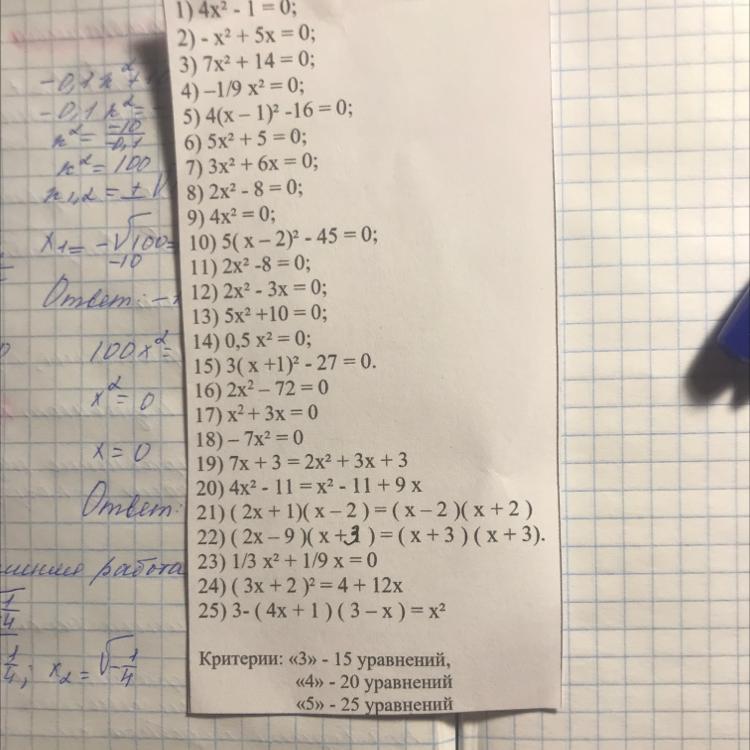 1) 4x² - 1 = 0;
2) - x² + 5x = 0;
3) 7x² + 14 = 0;
4) –1/9 x² = 0;
5) 4(x – 1)² -16 = 0;
6) 5x² + 5 = 0;
7) 3x² + 6x = 0;
8) 2x² - 8 = 0;
9) 4x² = 0;
10) 5( x – 2)² - 45 = 0;
11) 2x² -8 = 0;
12) 2x² - 3x = 0;
13) 5x² +10 = 0;
14) 0,5 x² = 0;
15) 3( x +1)² - 27 = 0.
16) 2x² – 72 = 0
17) x² + 3x = 0
18) – 7x² = 0
19) 7x + 3 = 2x² + 3x + 3
20) 4x² - 11 = x² - 11 + 9 x
21) ( 2x + 1)( x – 2 ) = ( x – 2 )( x + 2 )
22) ( 2x – 9 )( x +3 ) = ( x + 3 ) ( x + 3).
23) 1/3 x² + 1/9 x = 0
24) ( 3x + 2 )² = 4 + 12x
25) 3- ( 4x + 1 ) ( 3 – x ) = x²
Критерии: «3» - 15 уравнений,
«4» - 20 уравнений
«5» - 25 уравнений
-0,1 x²
-0,1 x² =
x² = -10/-0,1
x² = 100
x1,2 = ±√
x1 = -√100 =
-10
Ответ: -
100x² =
x² = 0
x = 0
Ответ:
работа
√1/4
1/4; x2 = √-1/4